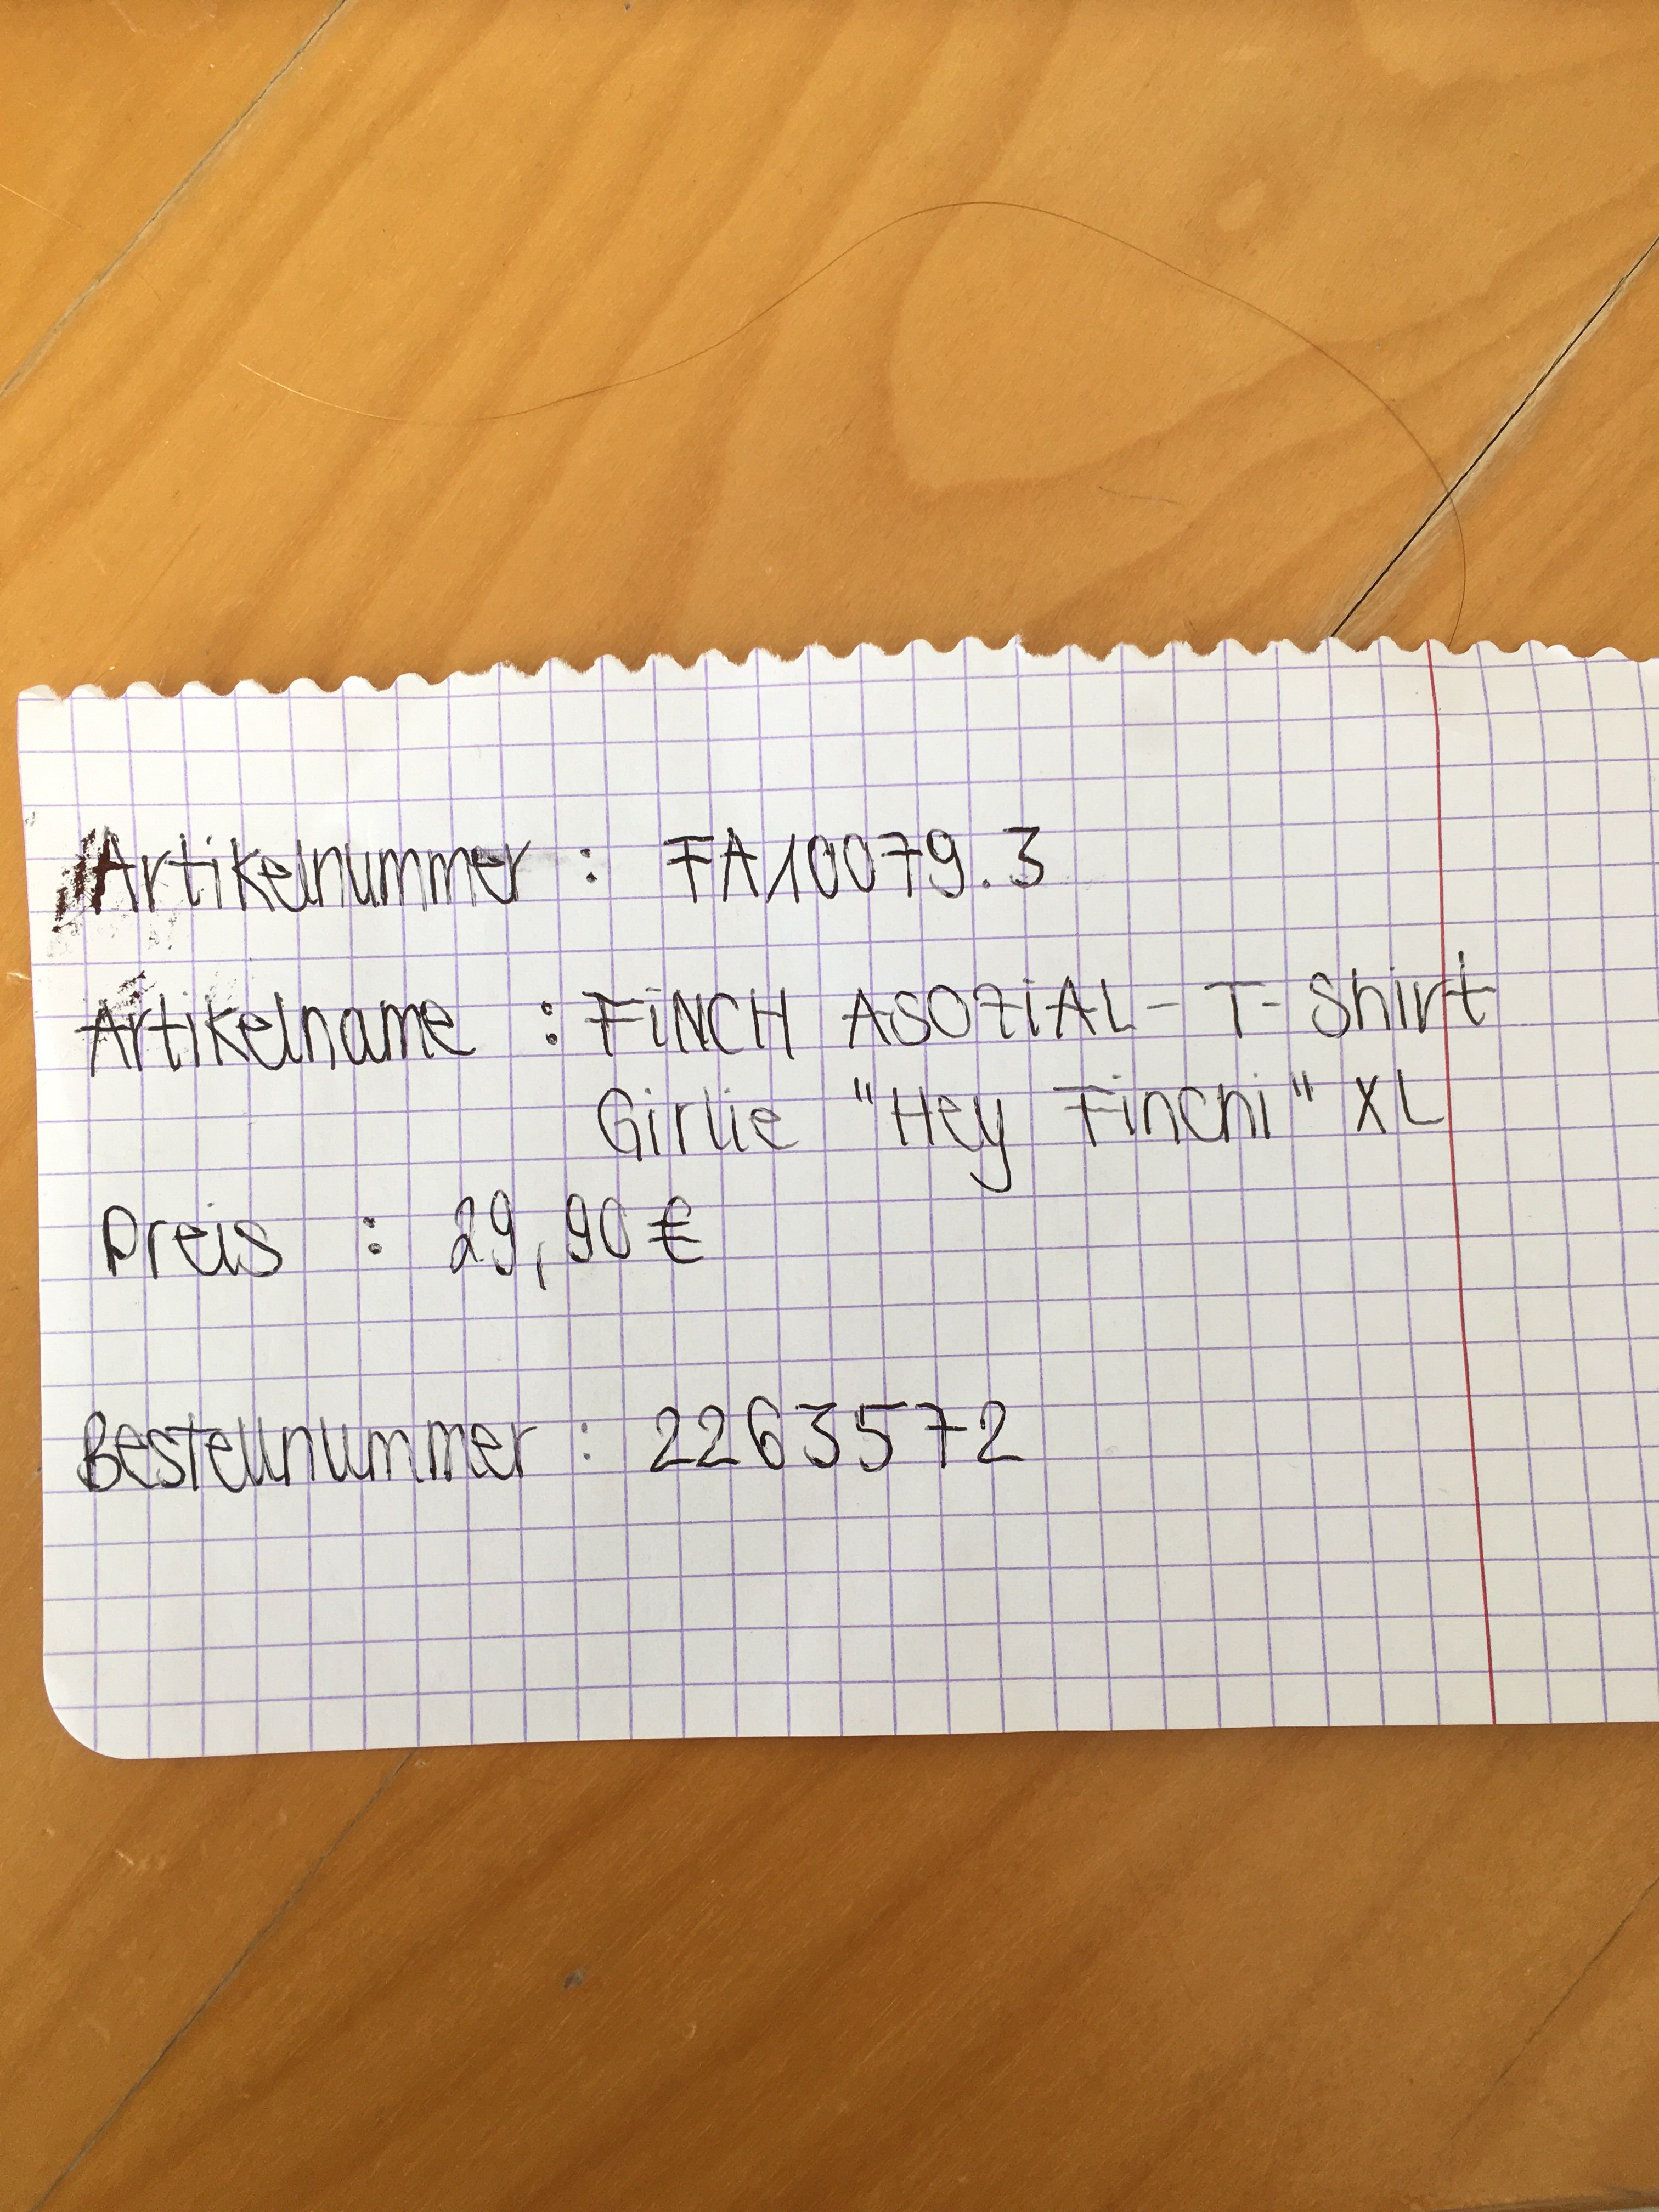 Artikelnummer : FA10079.3
Artikelname : FiNCH ASOZiAL - T- Shirt
Girlie "Hey Finchi" XL
Preis : 29,90€
Bestellnummer : 2263572